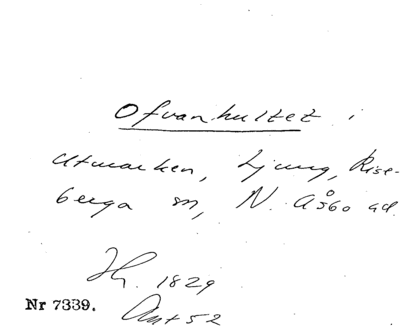 Ofvanhultet i
utmarken, Ljung, Rise-
berga sn, N. Åsbo hd.
1829
Nr 7339.
52